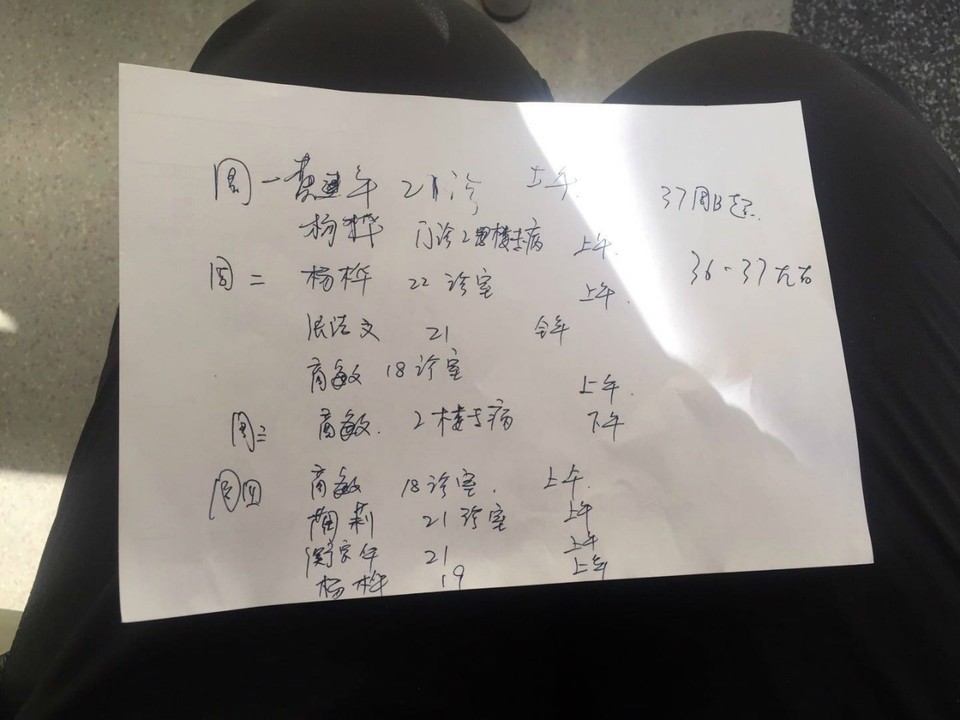 周一 莫建年 21诊 上午
37周B超
杨桦 门诊2楼专病 上午
周二 杨桦 22诊室 上午
36-37左右
张洁文 21 全年
商敏 18诊室 上午
周三 商敏. 2楼专病 下午
周四 商敏 18诊室. 上午
陶莉 21诊室 上午
21 上午
杨桦 19 上午